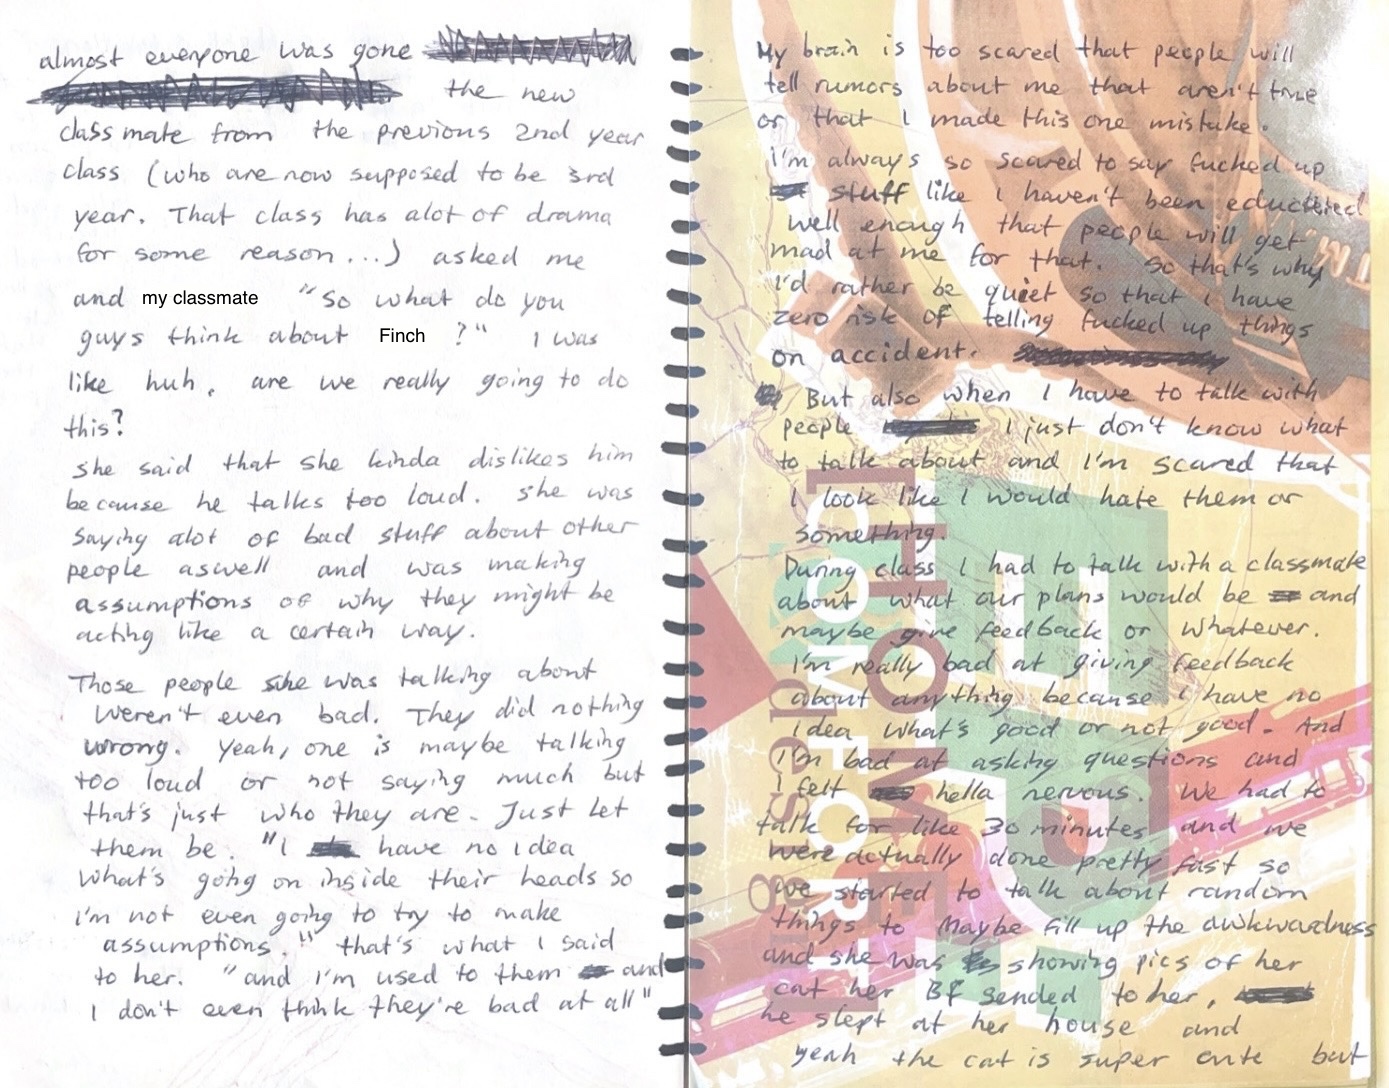 almost everyone was gone
the new
classmate from the previous 2nd year
class (who are now supposed to be 3rd
year. That class has alot of drama
for some reason...) asked me
and my classmate "so what do you
guys think about Finch ?" I was
like huh, are we really going to do
this?
she said that she kinda dislikes him
because he talks too loud. she was
saying alot of bad stuff about other
people aswell and was making
assumptions of why they might be
acting like a certain way.
Those people she was talking about
weren't even bad. They did nothing
wrong. yeah, one is maybe talking
too loud or not saying much but
that's just who they are. Just let
them be. "I have no idea
what's going on inside their heads so
i'm not even going to try to make
assumptions." that's what I said
to her. "and i'm used to them and
I don't even think they're bad at all"
My brain is too scared that people will
tell rumors about me that aren't true
or that I made this one mistake.
I'm always so scared to say fucked up
stuff like I haven't been
well enough that people will get
mad at me for that. so that's why
I'd rather be quiet so that I have
zero risk of telling fucked up things
on accident.
But also when I have to talk with
people I just don't know what
to talk about and I'm scared that
I look like I would hate them or
something.
During class I had to talk with a classmate
about what our plans would be and
maybe give feedback or whatever.
I'm really bad at giving feedback
about anything because I have no
idea what's good or not good. And
I'm bad at asking questions and
I felt hella nervous. We had to
talk for like 30 minutes and we
were actually done pretty fast so
we started to talk about random
things to maybe fill up the awkwardness
and she was showing pics of her
cat her BF sended to her,
he slept at her house and
yeah the cat is super cute but
HOME
COMFORT
design